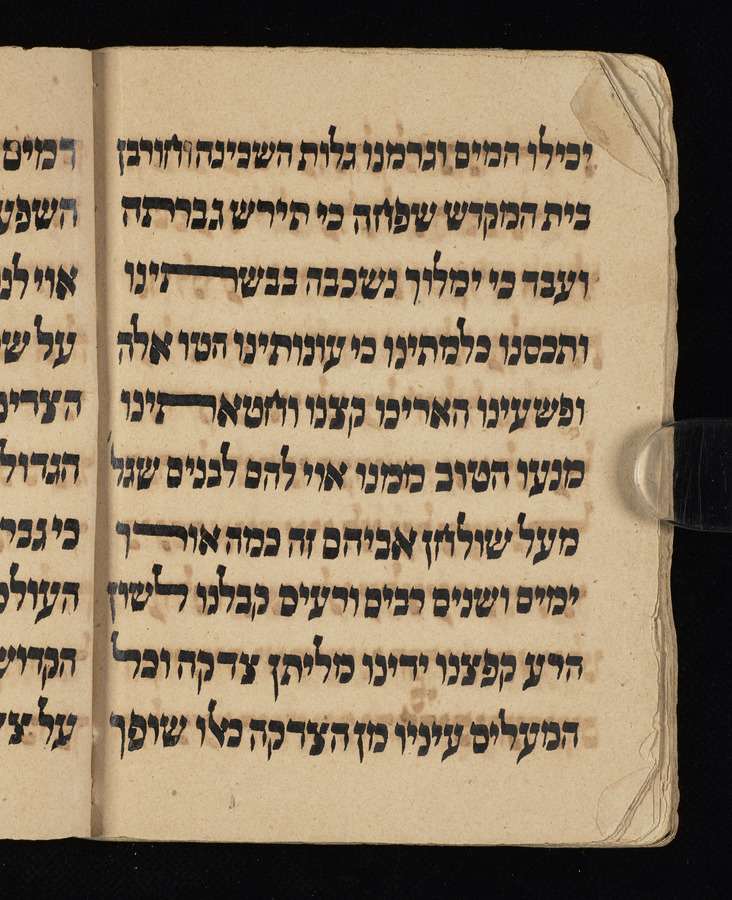 יכילו המים וגרמנו גלות השכינה וחורבן
בית המקדש שפחה כי תירש גברתה
ועבד כי ימלוך נשכבה בבשתינו
ותכסנו כלמתינו כי עונותינו הטו אלה
ופשעינו האריכו קצנו וחטאתינו
מנעו הטוב ממנו אוי להם לבנים שגלו
מעל שולחן אביהם זה כמה אורך
ימים ושנים רבים ורעים קבלנו לשון
הרע קפצנו ידינו מליתן צדקה וכל
המעלים עיניו מן הצדקה כאלו שופך
דמים
השפע
אוי לנו
על
הגדול
כי גבר
על